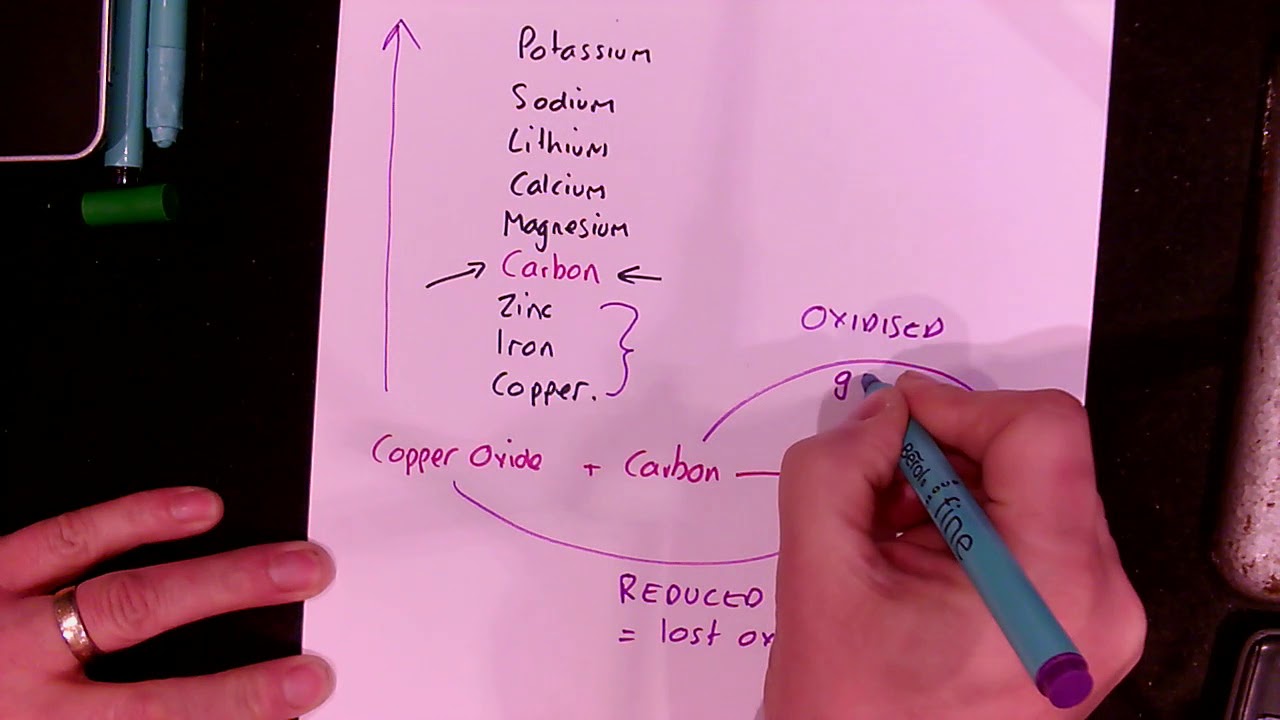 Potassium
Sodium
Lithium
Calcium
Magnesium
Carbon
Zinc
Iron
Copper.
OXIDISED
g
Copper Oxide + Carbon
REDUCED
= lost ox
Berol
fine